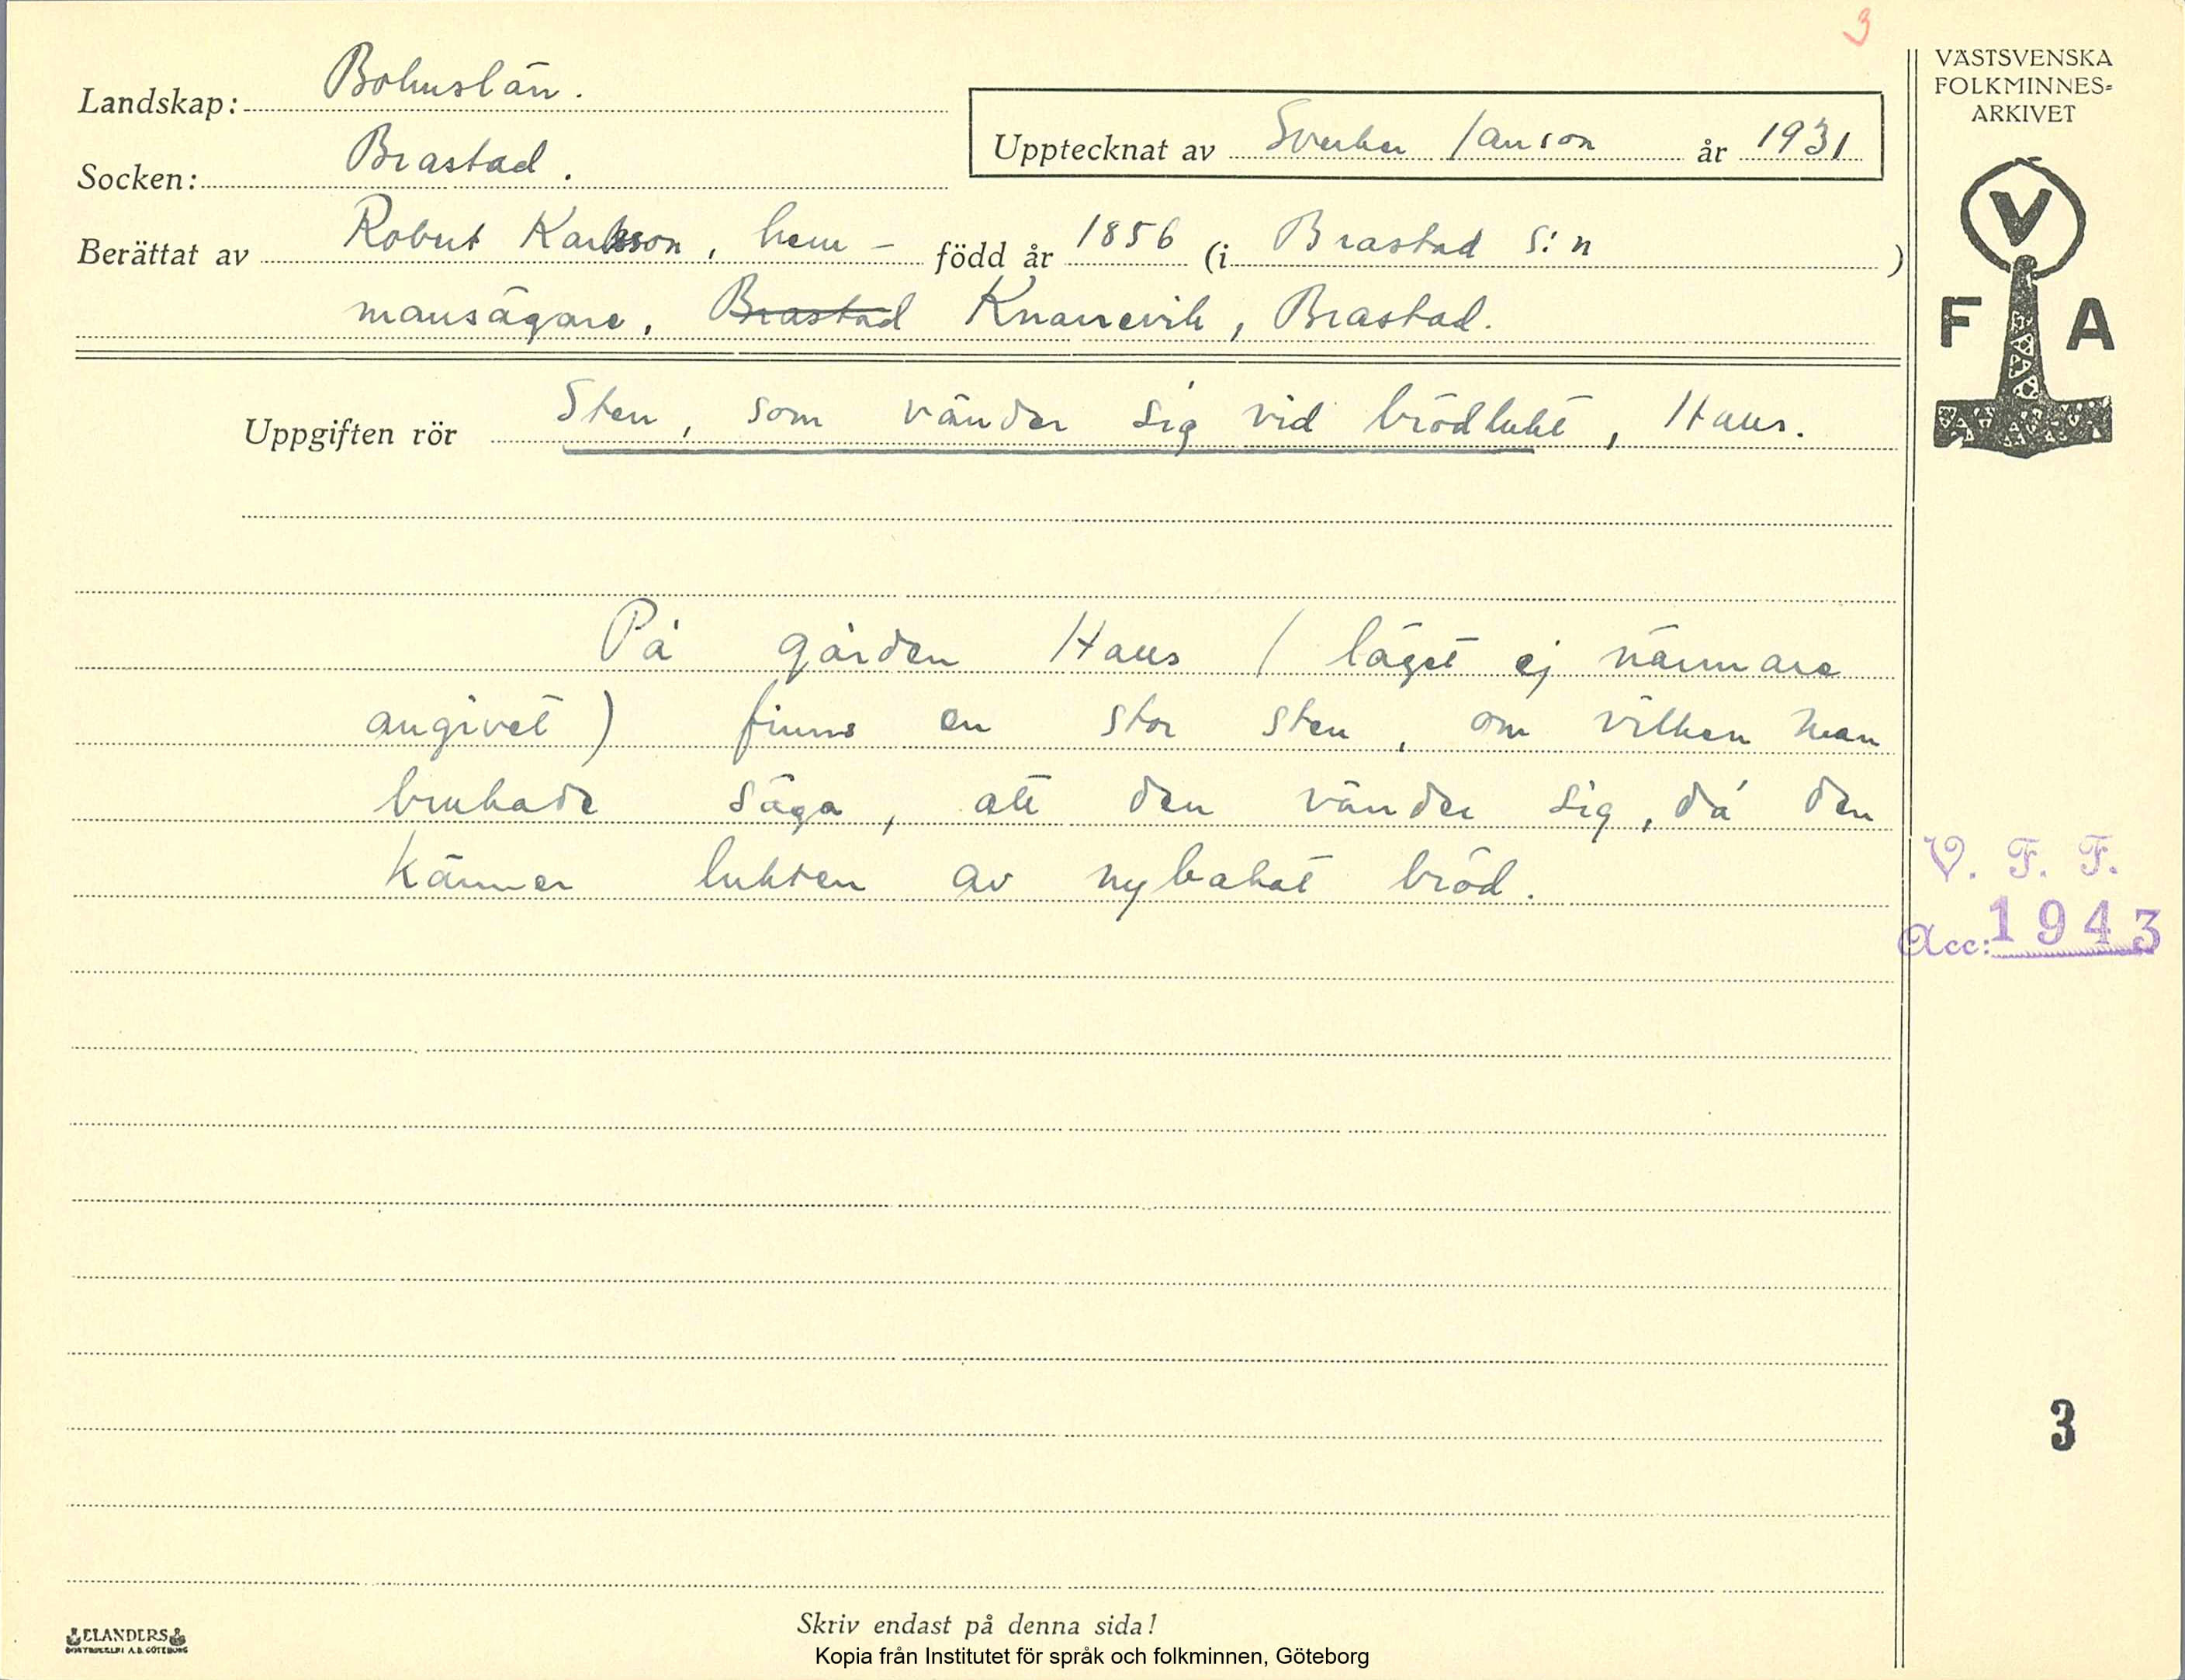 3
Landskap: Bohuslän.
VÄSTSVENSKA
FOLKMINNES-
ARKIVET
Upptecknat av Sverker Janson år 1931
Socken: Brastad.
Berättat av Robert Karlsson, hem- född år 1856 (i Brastad s:n )
mansägare, Brastad Knarrevik, Brastad.
V
F A
Uppgiften rör Sten, som vänder sig vid brödlukt, Haus.
På gården Haus (läget ej närmare
angivet) finns en stor sten, om vilken man
brukade säga, att den vänder sig, då den
känner lukten av nybakat bröd.
V. F. F.
Acc: 1943
3
Skriv endast på denna sida!
ELANDERS
BOKTRYCKERI A.B. GÖTEBORG
Kopia från Institutet för språk och folkminnen, Göteborg